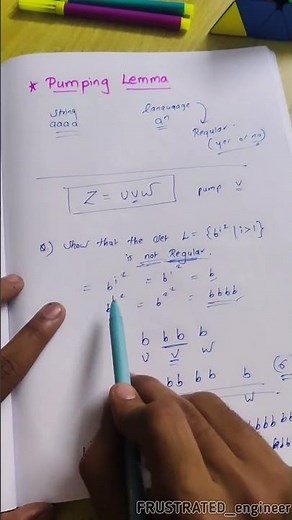 * Pumping Lemma
string
aaaa
language
aⁿ
Regular.
(yes or no)
Z = uvw
pump v
Q.) Show that the set L = {b^i² | i>1}
is not Regular.
= b^i² = b^1² = b
= b^2² = bbbb
b bb b
u v w
bb bb b
w
FRUSTRATED_engineer